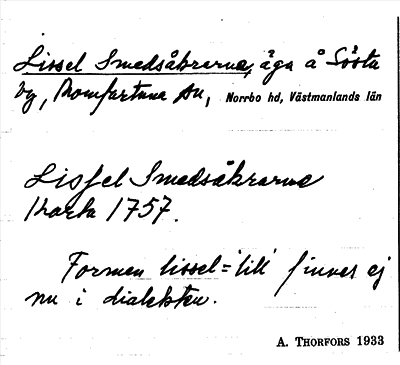 Lissel Smedsåkrarna, äga å Sösta
by, Romfartuna sn, Norrbo hd, Västmanlands län
Lissel Smedsåkrarne
Karta 1757.
Formen lissel = 'lill' finnes ej
nu i dialekten.
A. THORFORS 1933